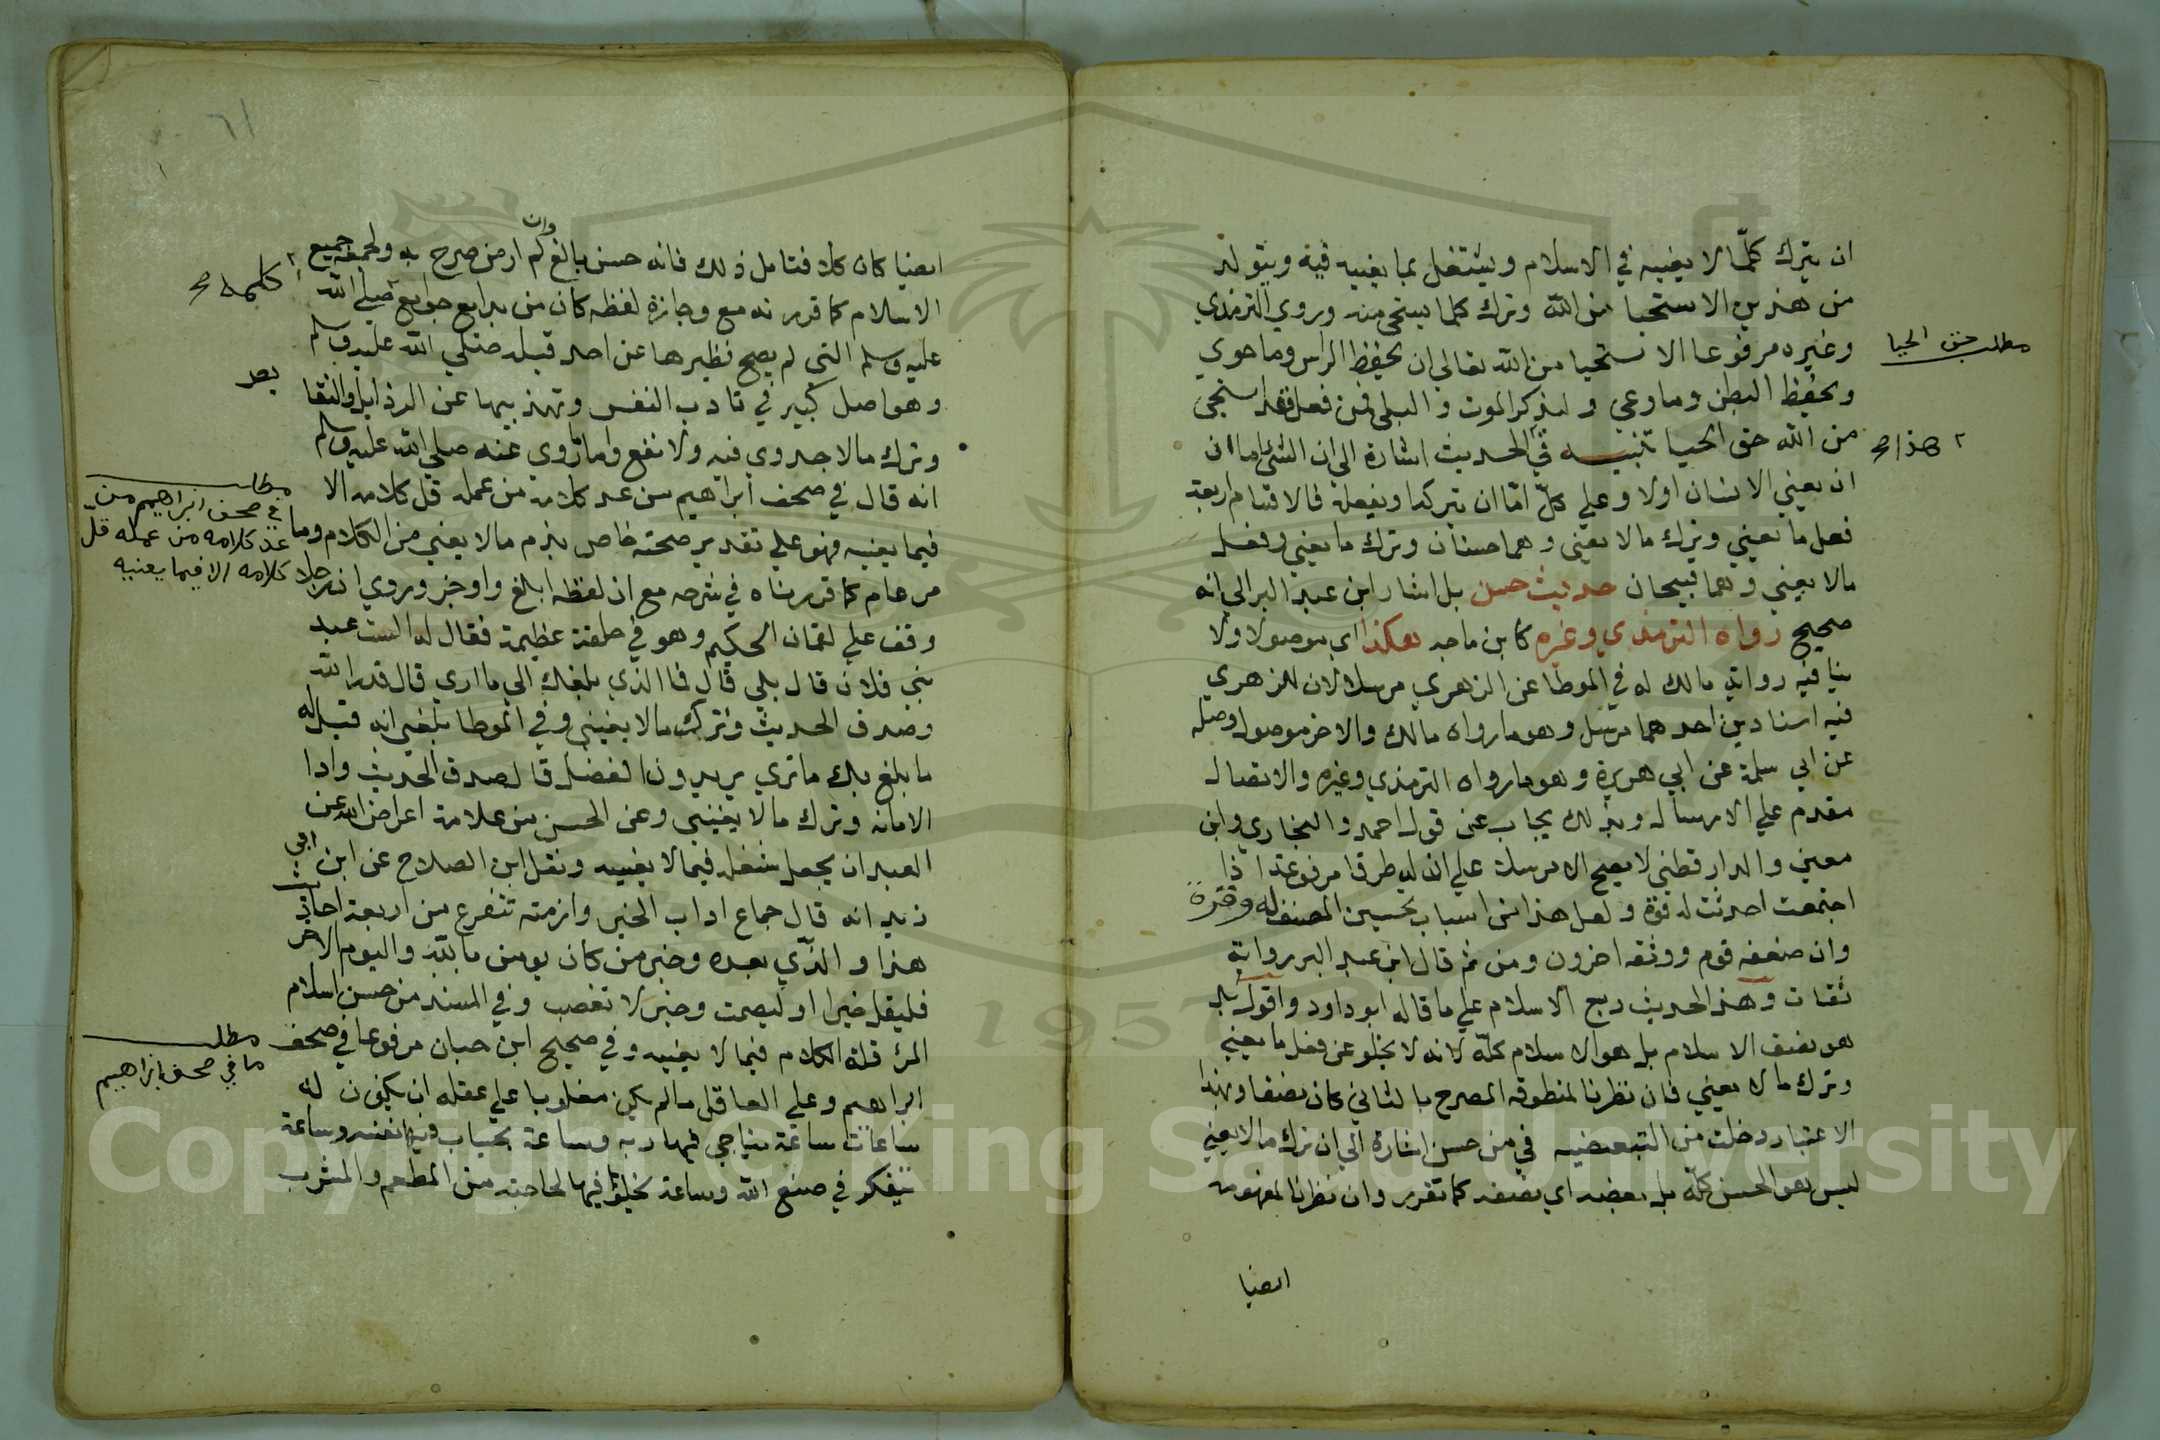 ان يترك كلّما لا يعنيه في الاسلام ويشتغل بما يعنيه فيه ويتولد
من هذين الاستحيا من الله وترك كلما يستحى منه وروي الترمذي
وغيره مرفوعا الاستحيا من الله تعالى ان يحفظ الراس وما حوي
مطلب حق الحيا
ويحفظ البطن وما وعي وليذكر الموت والبلى فمن فعل فقد استحي
من الله حق الحيا تنبيه في الحديث اشارة الي ان الشئ اما ان
هذا صح
ان يعني الانسان اولا وعلي كلّ امّا ان يتركه او يفعله فالاقسام اربعة
فعل ما يعني وترك ما لا يعني وهما حسنان وترك ما يعني وفعل
ما لا يعني وهما قبيحان حديث حسن بل اشار ابن عبد البر الي انه
صحيح رواه الترمذي وغيره كابن ماجه هكذا اي موصولا ولا
ينافيه رواية مالك له في الموطا عن الزهري مرسلا لان للزهري
فيه اسنادين احدهما مرسل وهو ما رواه مالك والاخر موصول وصله
عن ابي سلمة عن ابي هريرة وهو ما رواه الترمذي وغيره والاتصال
مقدم علي الارسال وبذلك يجاب عن قول احمد والبخاري وابن
معين والدارقطني لا يصح الا مرسلا علي ان له طرقا مرفوعة اذا
اجتمعت احدثت له قوة ولعل هذا من اسباب تحسين المصنف له وقرة
وان ضعفه قوم ووثقه اخرون ومن ثم قال ابن عبد البر رواته
ثقات وهذا الحديث ربع الاسلام علي ما قاله ابو داود واقول بل
هو نصف الاسلام بل هو الاسلام كلّه لانه لا يخلو عن فعل ما يعني
وترك ما لا يعني فان نظرنا لمنطوقه المصرح بالثاني كان نصفا وبهذا
الاعتبار دخلت من التبعضيه في من حسن اشارة الي ان ترك ما لا يعني
ليس هو الحسن كلّه بل بعضه اي نصفه كما تقرر وان نظرنا لمفهومه
ايضيا
٦١
ايضيا كان كلا فتامل ذلك فانه حسن بالغ وان لم ار من صرح به ولجمعه جميع
الاسلام كما قررته مع وجازة لفظه كان من بدايع جوامع صلي الله
كلمه صح
عليه وسلم التي لم يصح نظيرها عن احد قبله صلي الله عليه وسلم
وهو اصل كبير في تادب النفس وتهذيبها عن الرذايل والنقا
يص
وترك ما لا جدوي فيه ولا نفع وما روي عنه صلي الله عليه وسلم
انه قال في صحف ابراهيم من عد كلامه من عمله قل كلامه الا
مطلب
في صحف ابراهيم من
عد كلامه من عمله قلّ
كلامه الا فيما يعنيه
فيما يعنيه فهو علي تقدير صحته خاص بذم ما لا يعني من الكلام وما
مر عام كما قررناه في شرحه مع ان لفظه ابلغ واوجز وروي ان رجلا
وقف علي لقمان الحكيم وهو في حلقة عظيمة فقال له الست عبد
بني فلان قال بلي قال فما الذي بلغك الي ما اري قال قدر الله
وصدق الحديث وترك ما لا يعنيني وفي الموطا بلغني انه قيل له
ما بلغ بك ما تري يريدون الفضل قال صدق الحديث وادا
الامانه وترك ما لا يعنيني وعن الحسن من علامة اعراض الله عن
العبد ان يجعل شغله فيما لا يعنيه ونقل ابن الصلاح عن ابن ابي
زيد انه قال جماع اداب الخير وازمته تتفرع من اربعة احاديث
هذا والذي بعده وخبر من كان يومن بالله واليوم الاخر
فليقل خيرا او ليصمت وخبر لا تغضب وفي المسند من حسن اسلام
المرء قلة الكلام فيما لا يعنيه وفي صحيح ابن حبان مرفوعا في صحف
مطلب
ما في صحف ابراهيم
ابراهيم وعلي العاقل ما لم يكن مغلوبا علي عقله ان يكون له
ساعات ساعة يناجي فيها ربه وساعة يحاسب فيها نفسه وساعة
يتفكر في صنع الله وساعة يخلو فيها لحاجته من المطعم والمشرب
Copyright © King Saud University
1957